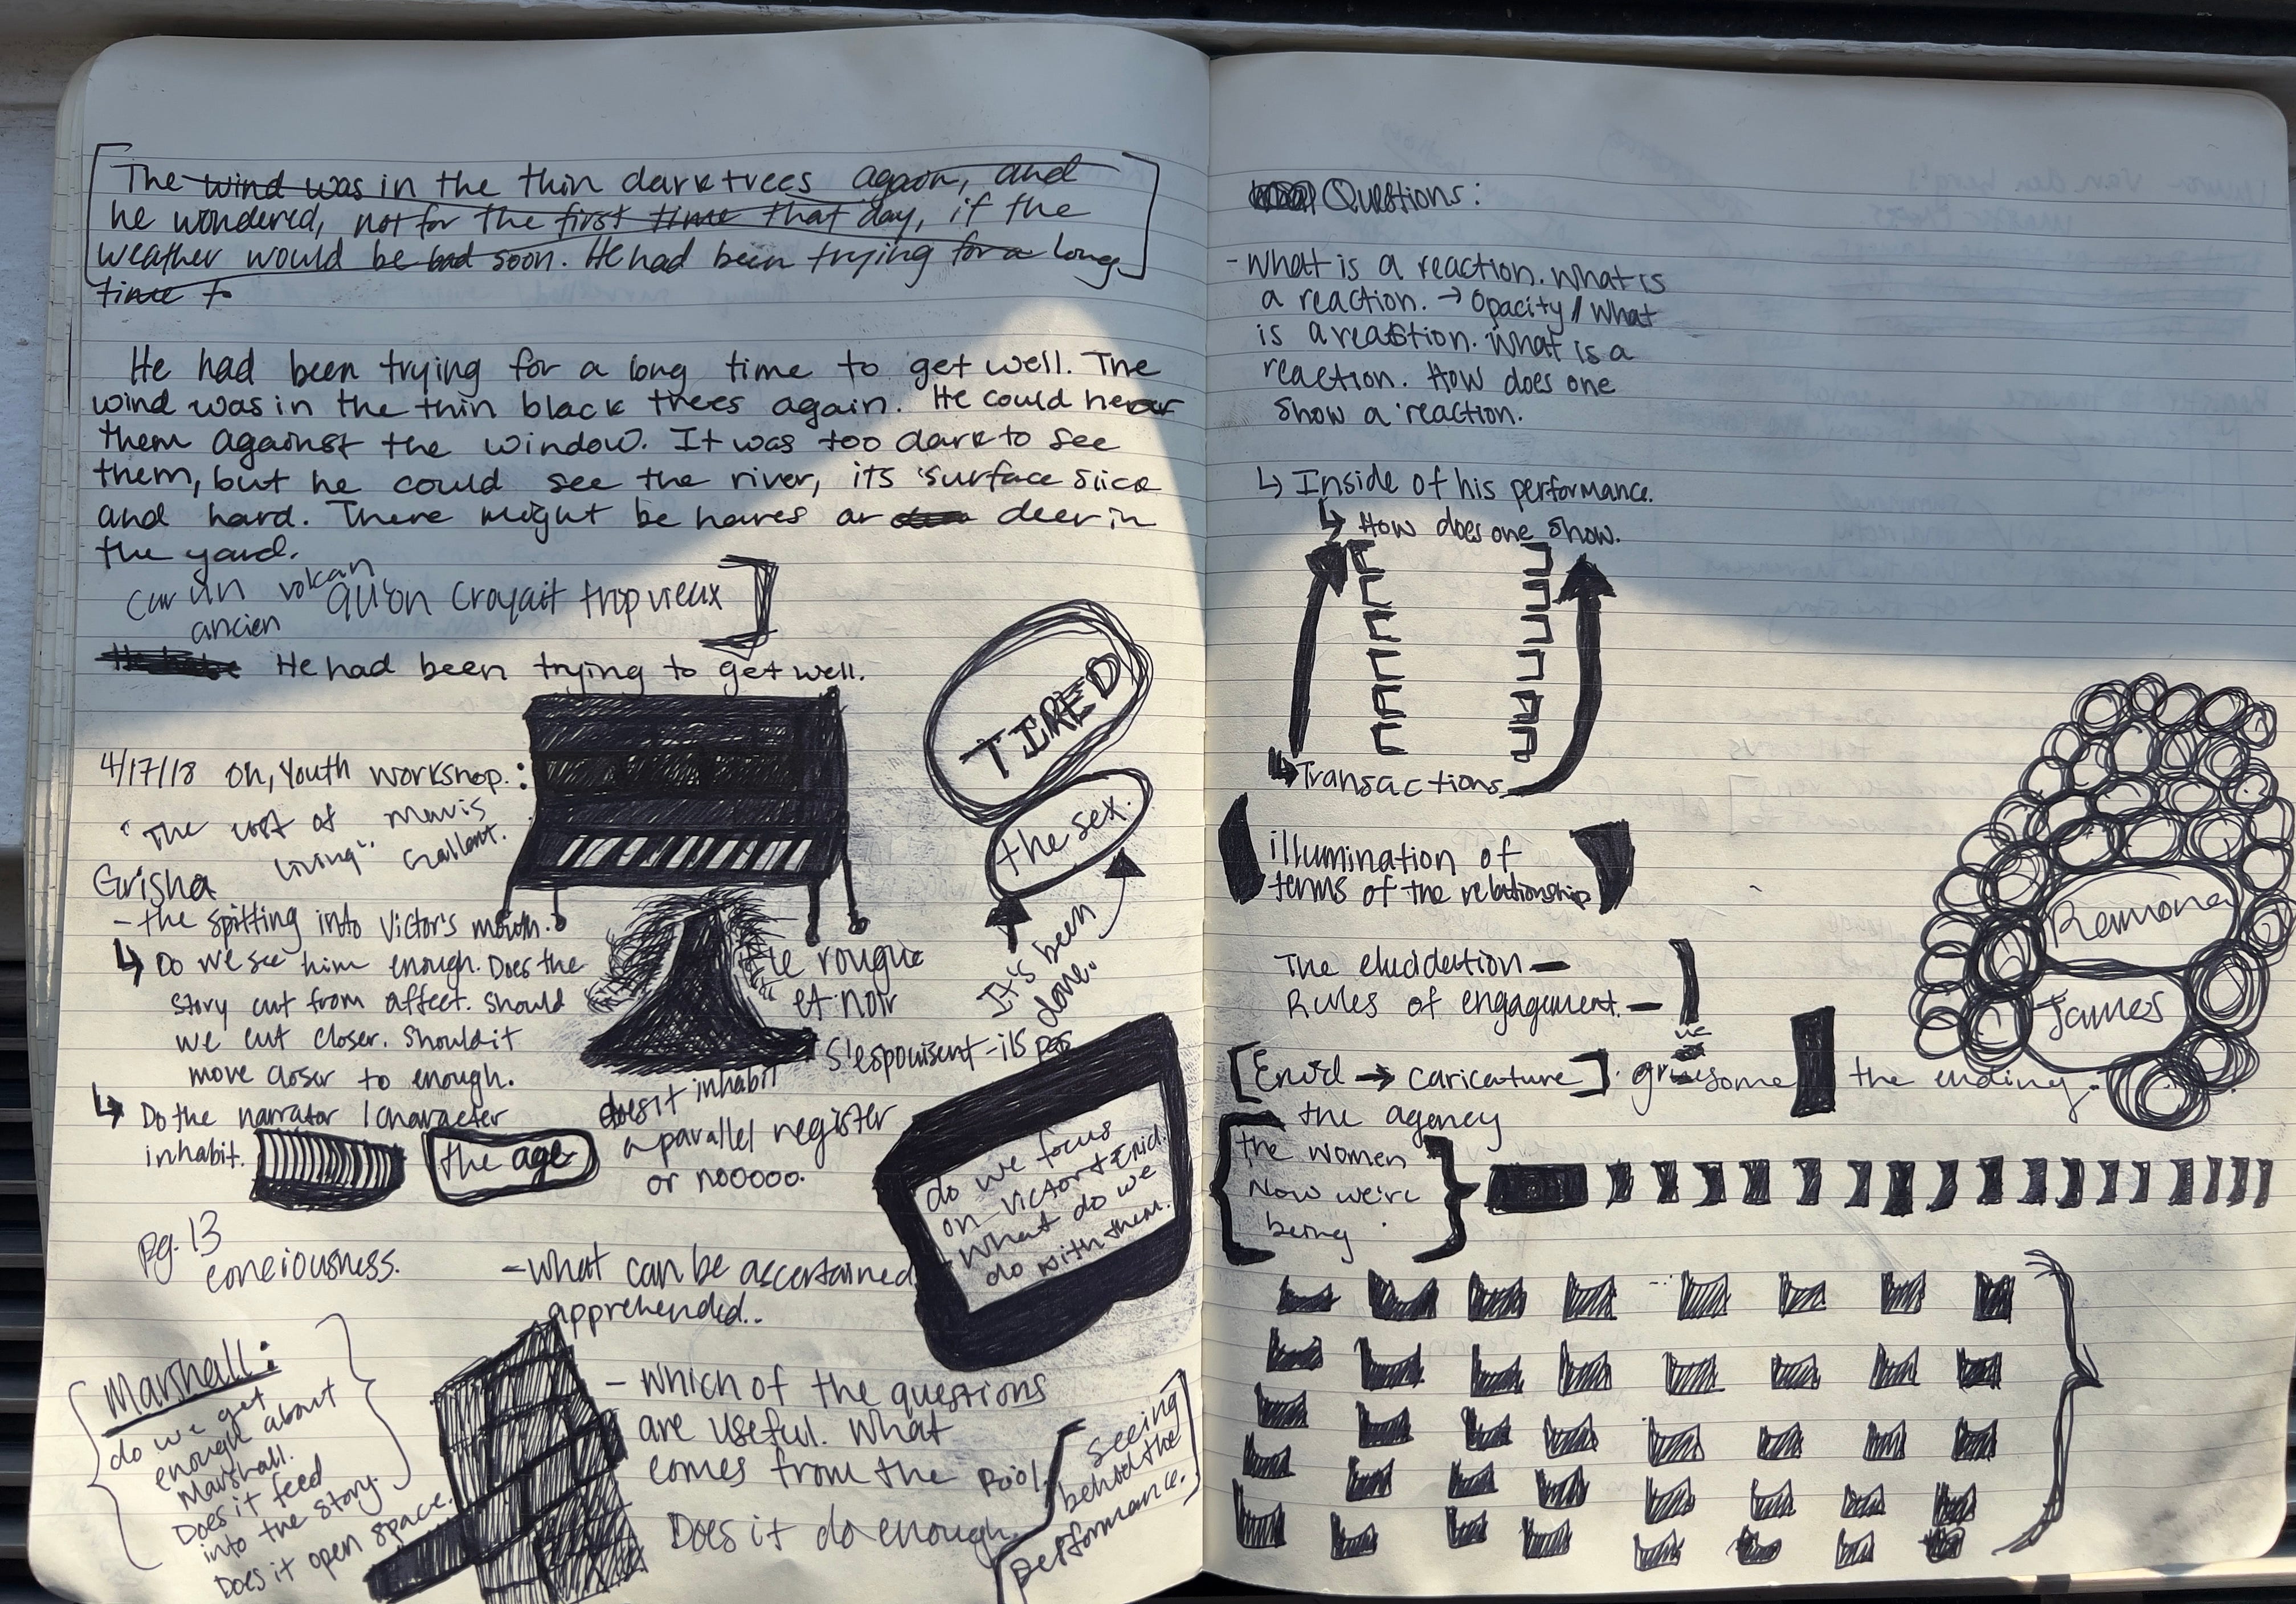 The wind was in the thin dark trees again, and
he wondered, not for the first time that day, if the
weather would be bad soon. He had been trying for a long
time to
He had been trying for a long time to get well. The
wind was in the thin black trees again. He could hear
them against the window. It was too dark to see
them, but he could see the river, its surface slick
and hard. There might be hares or deer in
the yard.
un volcan
ancien
qu'on croyait trop vieux
He had been trying to get well.
4/17/18 Oh, Youth workshop.:
"The cost of
living".
Mavis
Gallant.
Grisha
- the spitting into Victor's mouth.
↳ Do we see him enough. Does the
story cut from affect. Should
we cut closer. Should it
move closer to enough.
↳ Do the narrator / character
inhabit.
the age
does it inhabit
a parallel register
or nooooo.
TIRED
the sex.
It's been
done.
le rouge
et noir
s'espousent-ils pas
do we focus
on Victor + Enid.
What do we
do with them.
pg. 13
conciousness.
- what can be ascertained
apprehended..
Marshall:
do we get
enough about
Marshall.
Does it feed
into the story.
Does it open space.
- which of the questions
are useful. What
comes from the pool.
Does it do enough.
seeing
behind the
performance.
Questions:
- What is a reaction. What is
a reaction. → Opacity // What
is a reaction. What is a
reaction. How does one
show a reaction.
↳ Inside of his performance.
↳ How does one show.
↳ Transactions
illumination of
terms of the relationship
The elucidation —
Rules of engagement. —
[Enid → caricature]. gruesome the ending.
the agency
the women
Now we're
being
Ramona
James